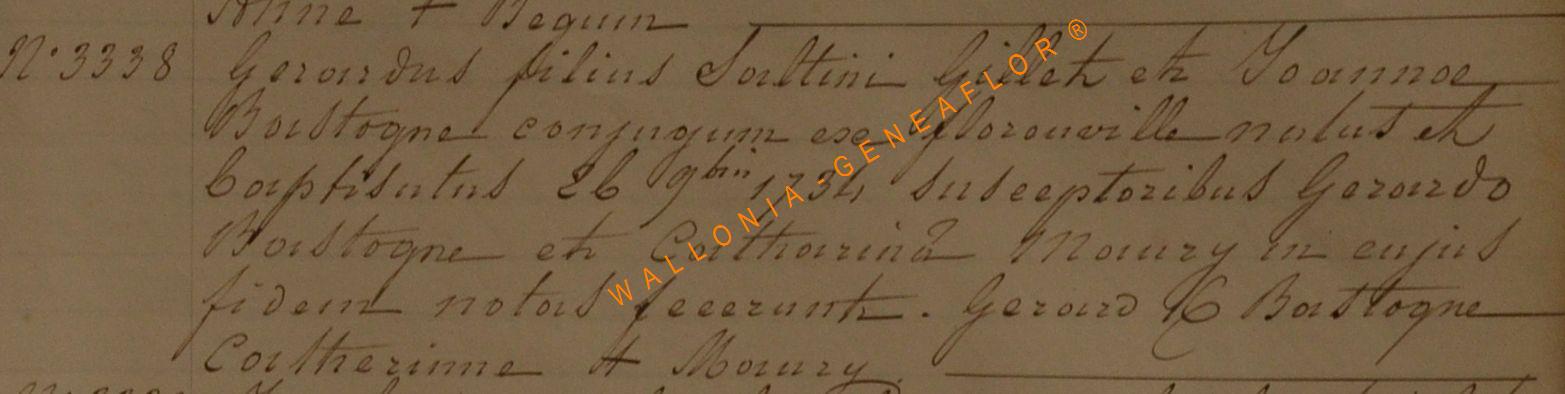 Anne + Bequin
N° 3338 Gerardus filius Saltini Gillet et Joannae
Bastogne conjugum ex florenville natus et
baptisatus 26 9bris 1734 susceptoribus Gerardo
Bastogne et Catharinâ Maury in cujus
fidem notas fecerunt. Gerard Bastogne
Catherinne + Maury.
WALLONIA-GENEAFLOR®